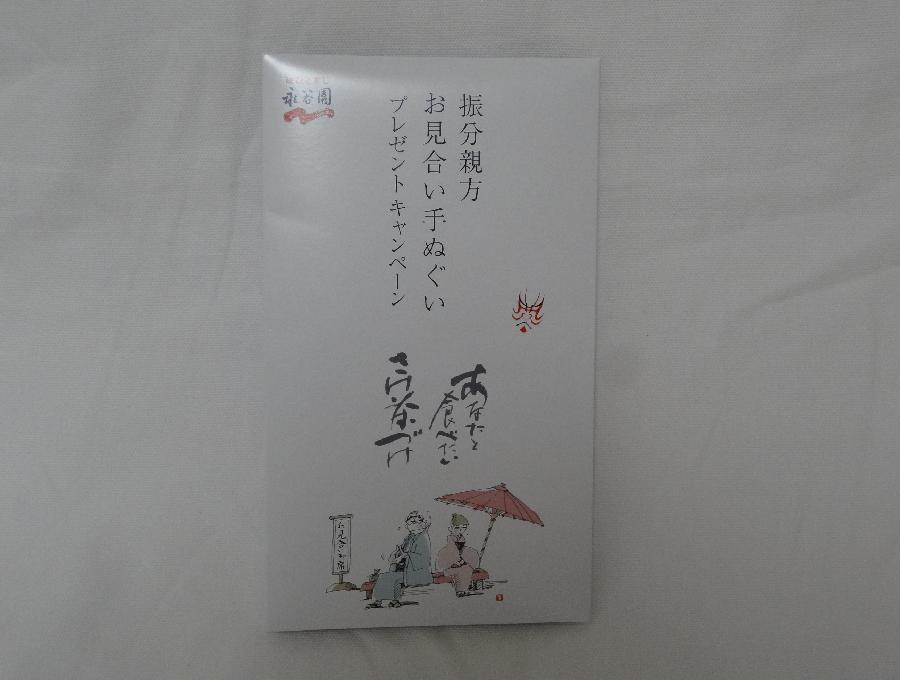 味ひとすじ
永谷園
振分親方
お見合い手ぬぐい
プレゼントキャンペーン
あなたと
食べたい
さけ茶づけ
お見合い席